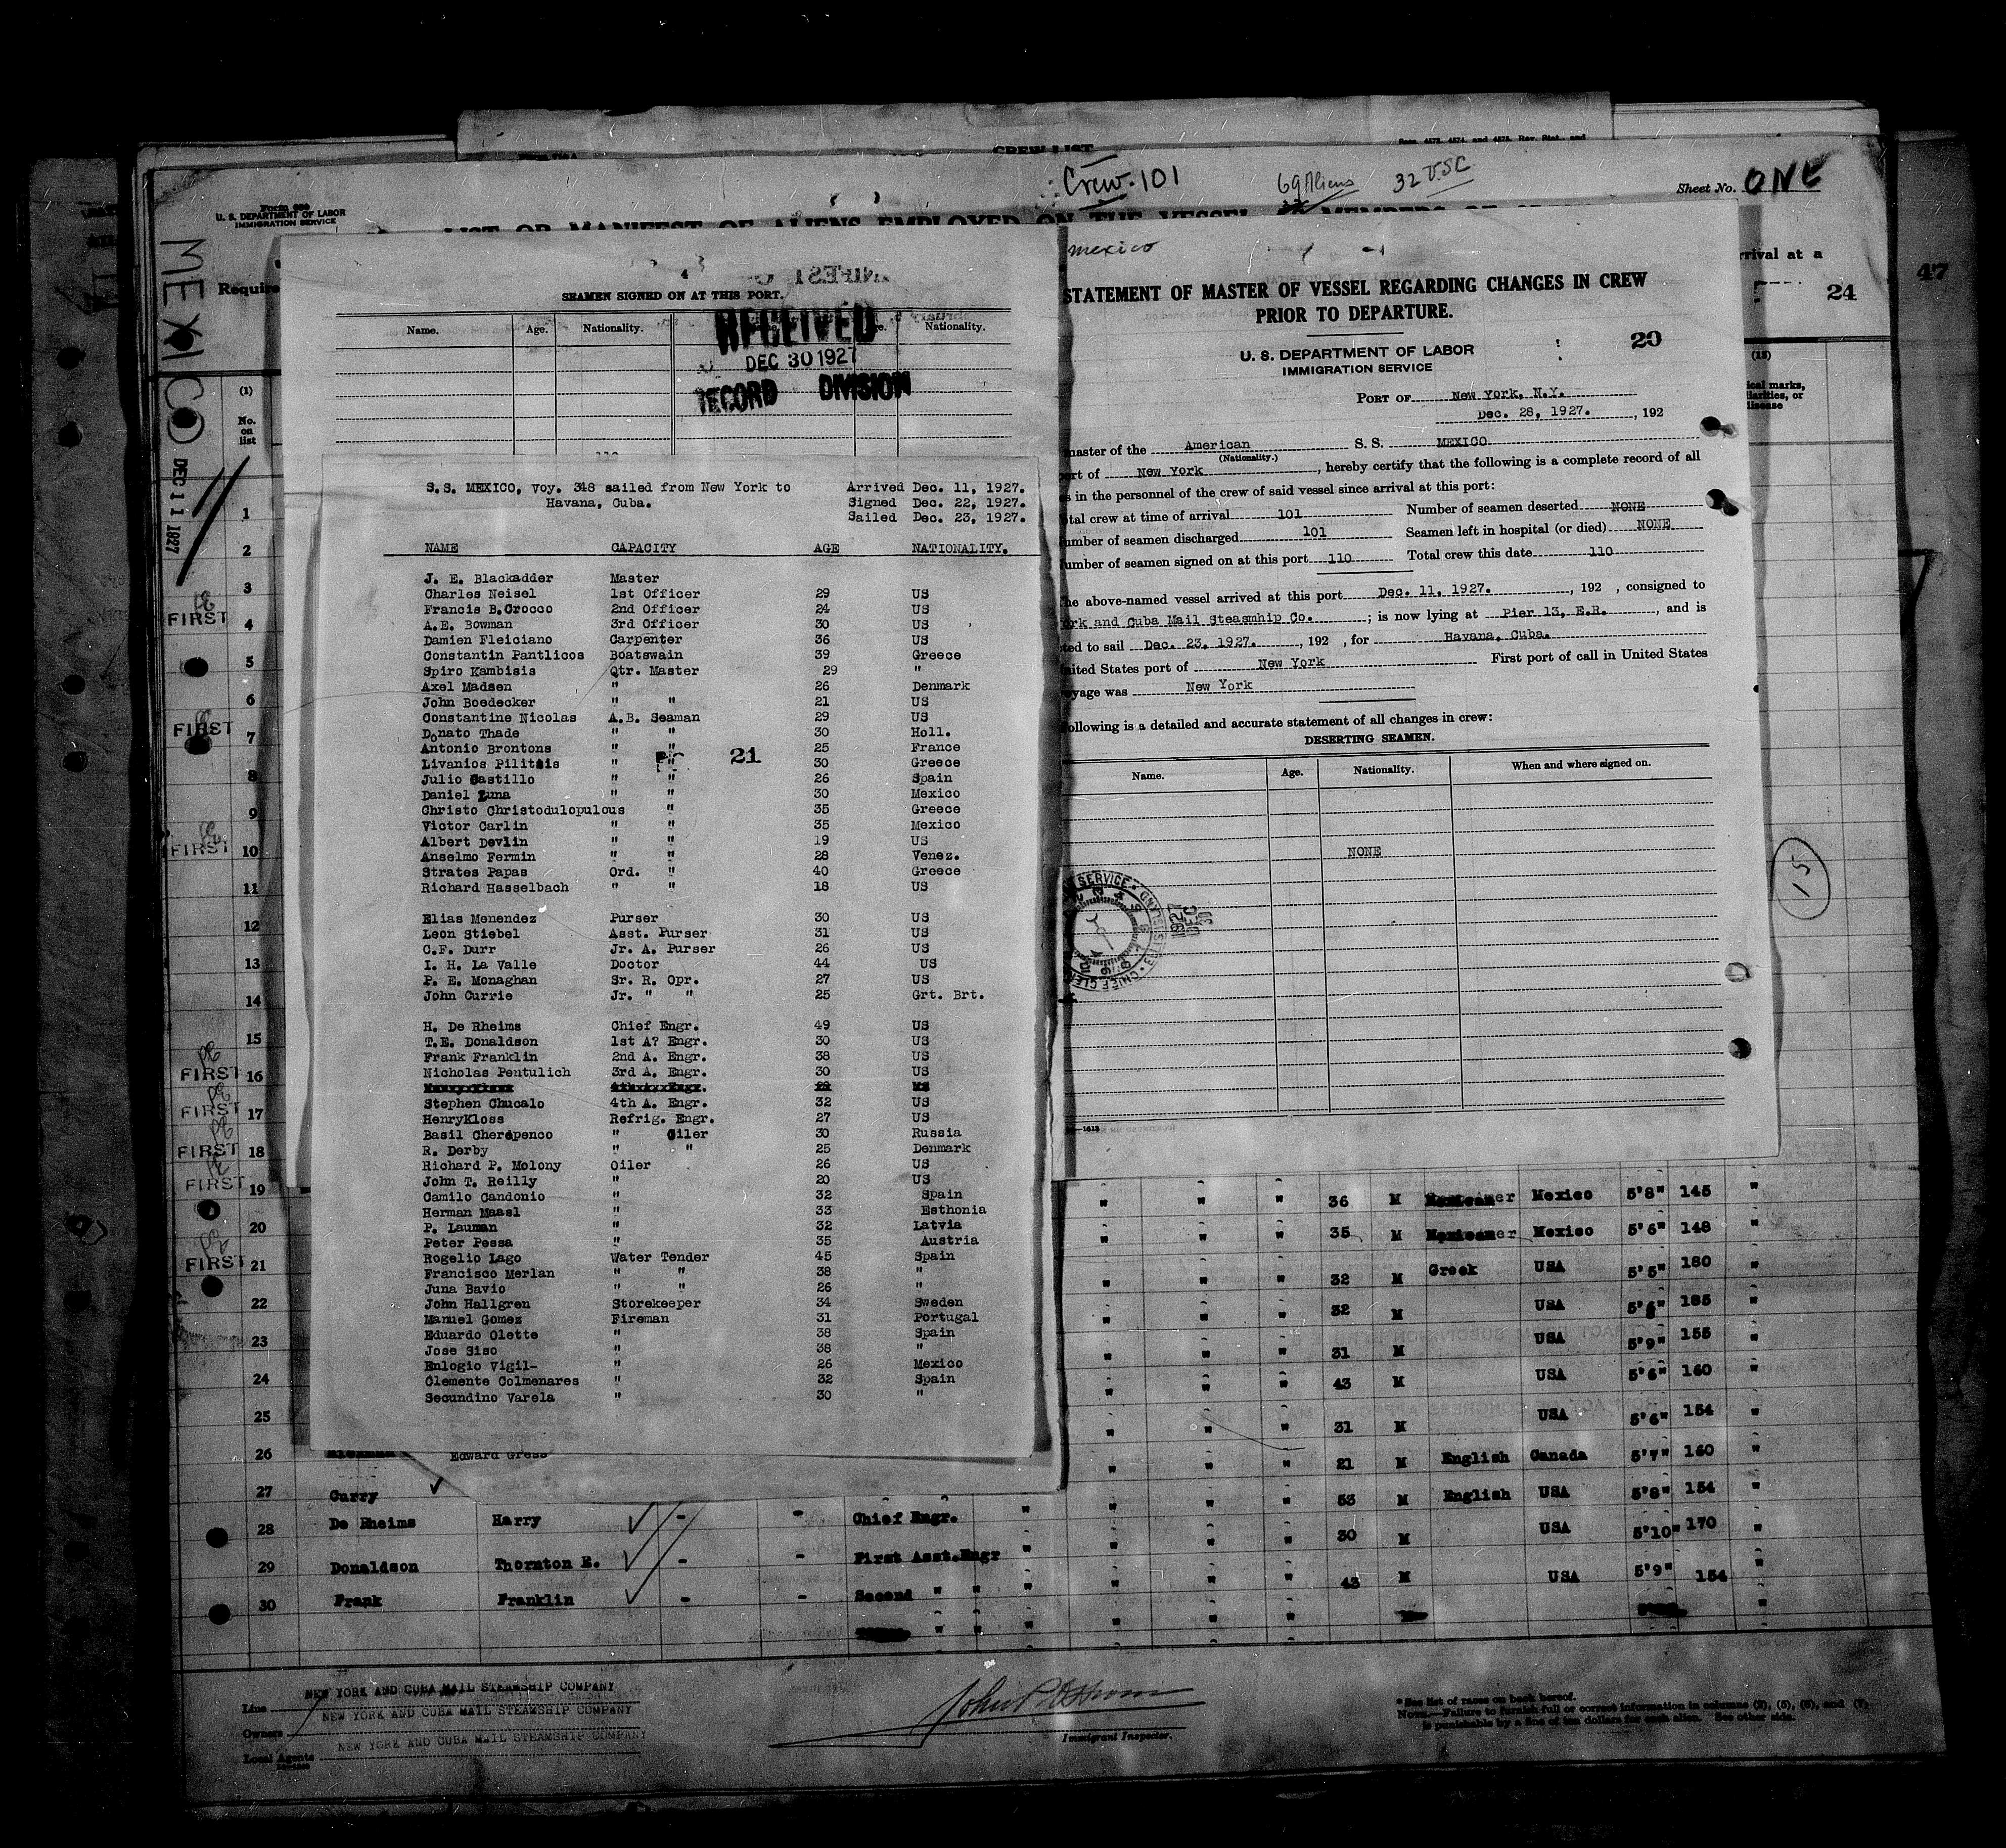 CREW LIST
Crew. 101
69 Aliens
32 USC
Sheet No. ONE
U. S. DEPARTMENT OF LABOR
IMMIGRATION SERVICE
LIST OR MANIFEST OF ALIENS EMPLOYED ON THE VESSEL
MEXICO
DEC 11 1927
Require
rrival at a
24
47
SEAMEN SIGNED ON AT THIS PORT.
Name. Age. Nationality. Nationality.
RECEIVED
DEC 30 1927
RECORD DIVISION
S.S. MEXICO, voy. 348 sailed from New York to Arrived Dec. 11, 1927.
Havana, Cuba. Signed Dec. 22, 1927.
Sailed Dec. 23, 1927.
NAME CAPACITY AGE NATIONALITY.
J. E. Blackadder Master
Charles Neisel 1st Officer 29 US
Francis B.Crocco 2nd Officer 24 US
A.E. Bowman 3rd Officer 30 US
Damien Fleiciano Carpenter 36 US
Constantin Pantlicos Boatswain 39 Greece
Spiro Kambisis Qtr. Master 29 "
Axel Madsen " 26 Denmark
John Boedecker " " 21 US
Constantine Nicolas A.B. Seaman 29 US
Donato Thade " " 30 Holl.
Antonio Brontons " " 25 France
21
Livanios Pilitsis " " 30 Greece
Julio Castillo " " 26 Spain
Daniel Luna " " 30 Mexico
Christo Christodulopulous " 35 Greece
Victor Carlin " " 35 Mexico
Albert Devlin " " 19 US
Anselmo Fermin " " 28 Venez.
Strates Papas Ord. " 40 Greece
Richard Hasselbach " " 18 US
Elias Menendez Purser 30 US
Leon Stiebel Asst. Purser 31 US
C.F. Durr Jr. A. Purser 26 US
I. H. La Valle Doctor 44 US
P. E. Monaghan Sr. R. Opr. 27 US
John Currie Jr. " " 25 Grt. Brt.
H. De Rheims Chief Engr. 49 US
T.E. Donaldson 1st A? Engr. 30 US
Frank Franklin 2nd A. Engr. 38 US
Nicholas Pentulich 3rd A. Engr. 30 US
Stephen Chucalo 4th A. Engr. 32 US
HenryKloss Refrig. Engr. 27 US
Basil Cherepenco " Oiler 30 Russia
R. Derby " " 25 Denmark
Richard P. Molony Oiler 26 US
John T. Reilly " 20 US
Camilo Candonio " 32 Spain
Herman Maasl " 33 Esthonia
P. Lauman " 32 Latvia
Peter Pessa " 35 Austria
Rogelio Lago Water Tender 45 Spain
Francisco Merlan " " 38 "
Juna Bavio " " 26 "
John Hallgren Storekeeper 34 Sweden
Manuel Gomez Fireman 31 Portugal
Eduardo Olette " 38 Spain
Jose Siso " 38 "
Eulogio Vigil- " 26 Mexico
Clemente Colmenares " 32 Spain
Secundino Varela " 30 "
mexico
STATEMENT OF MASTER OF VESSEL REGARDING CHANGES IN CREW
PRIOR TO DEPARTURE.
U. S. DEPARTMENT OF LABOR
IMMIGRATION SERVICE
20
PORT OF New York, N.Y.
Dec. 28, 1927. , 192
master of the American S. S. MEXICO
(Nationality.)
ort of New York , hereby certify that the following is a complete record of all
s in the personnel of the crew of said vessel since arrival at this port:
otal crew at time of arrival 101 Number of seamen deserted NONE
umber of seamen discharged 101 Seamen left in hospital (or died) NONE
umber of seamen signed on at this port 110 Total crew this date 110
he above-named vessel arrived at this port Dec. 11, 1927. , 192 , consigned to
ork and Cuba Mail Steasmhip Co. ; is now lying at Pier 13, E.R. , and is
ted to sail Dec. 23, 1927. , 192 , for Havana, Cuba.
nited States port of New York First port of call in United States
oyage was New York
ollowing is a detailed and accurate statement of all changes in crew:
DESERTING SEAMEN.
Name. Age. Nationality. When and where signed on.
NONE
15
(1)
No. on list
1
2
3
FIRST
4
5
6
FIRST
7
8
9
FIRST 10
11
12
13
14
15
FIRST 16
FIRST 17
FIRST 18
FIRST 19
20
FIRST 21
22
23
24
25
26 Edward Gress
27 Curry
28 De Rheims Harry - - Chief Engr. "
29 Donaldson Thornton E. - - First Asst.Engr "
30 Frank Franklin - - Second " " "
" " " 36 M Mexico 5'8" 145 "
" " " 35 M Mexico 5'6" 148 "
" " " 32 M Greek USA 5'5" 180 "
" " " 32 M USA 5'6" 185 "
" " " 31 M USA 5'9" 155 "
" " " 43 M USA 5'6" 160 "
" " " 31 M USA 5'6" 154 "
" " " 21 M English Canada 5'7" 160 "
" " " 53 M English USA 5'8" 154 "
" " " 30 M USA 5'10" 170 "
" " " 43 M USA 5'9" 154 "
Line NEW YORK AND CUBA MAIL STEAMSHIP COMPANY
Owners NEW YORK AND CUBA MAIL STEAMSHIP COMPANY
Local Agents NEW YORK AND CUBA MAIL STEAMSHIP COMPANY
Immigrant Inspector.
* See list of races on back hereof.
NOTE.—Failure to furnish full or correct information in columns (2), (5), (6), and (7)
is punishable by a fine of ten dollars for each alien. See other side.